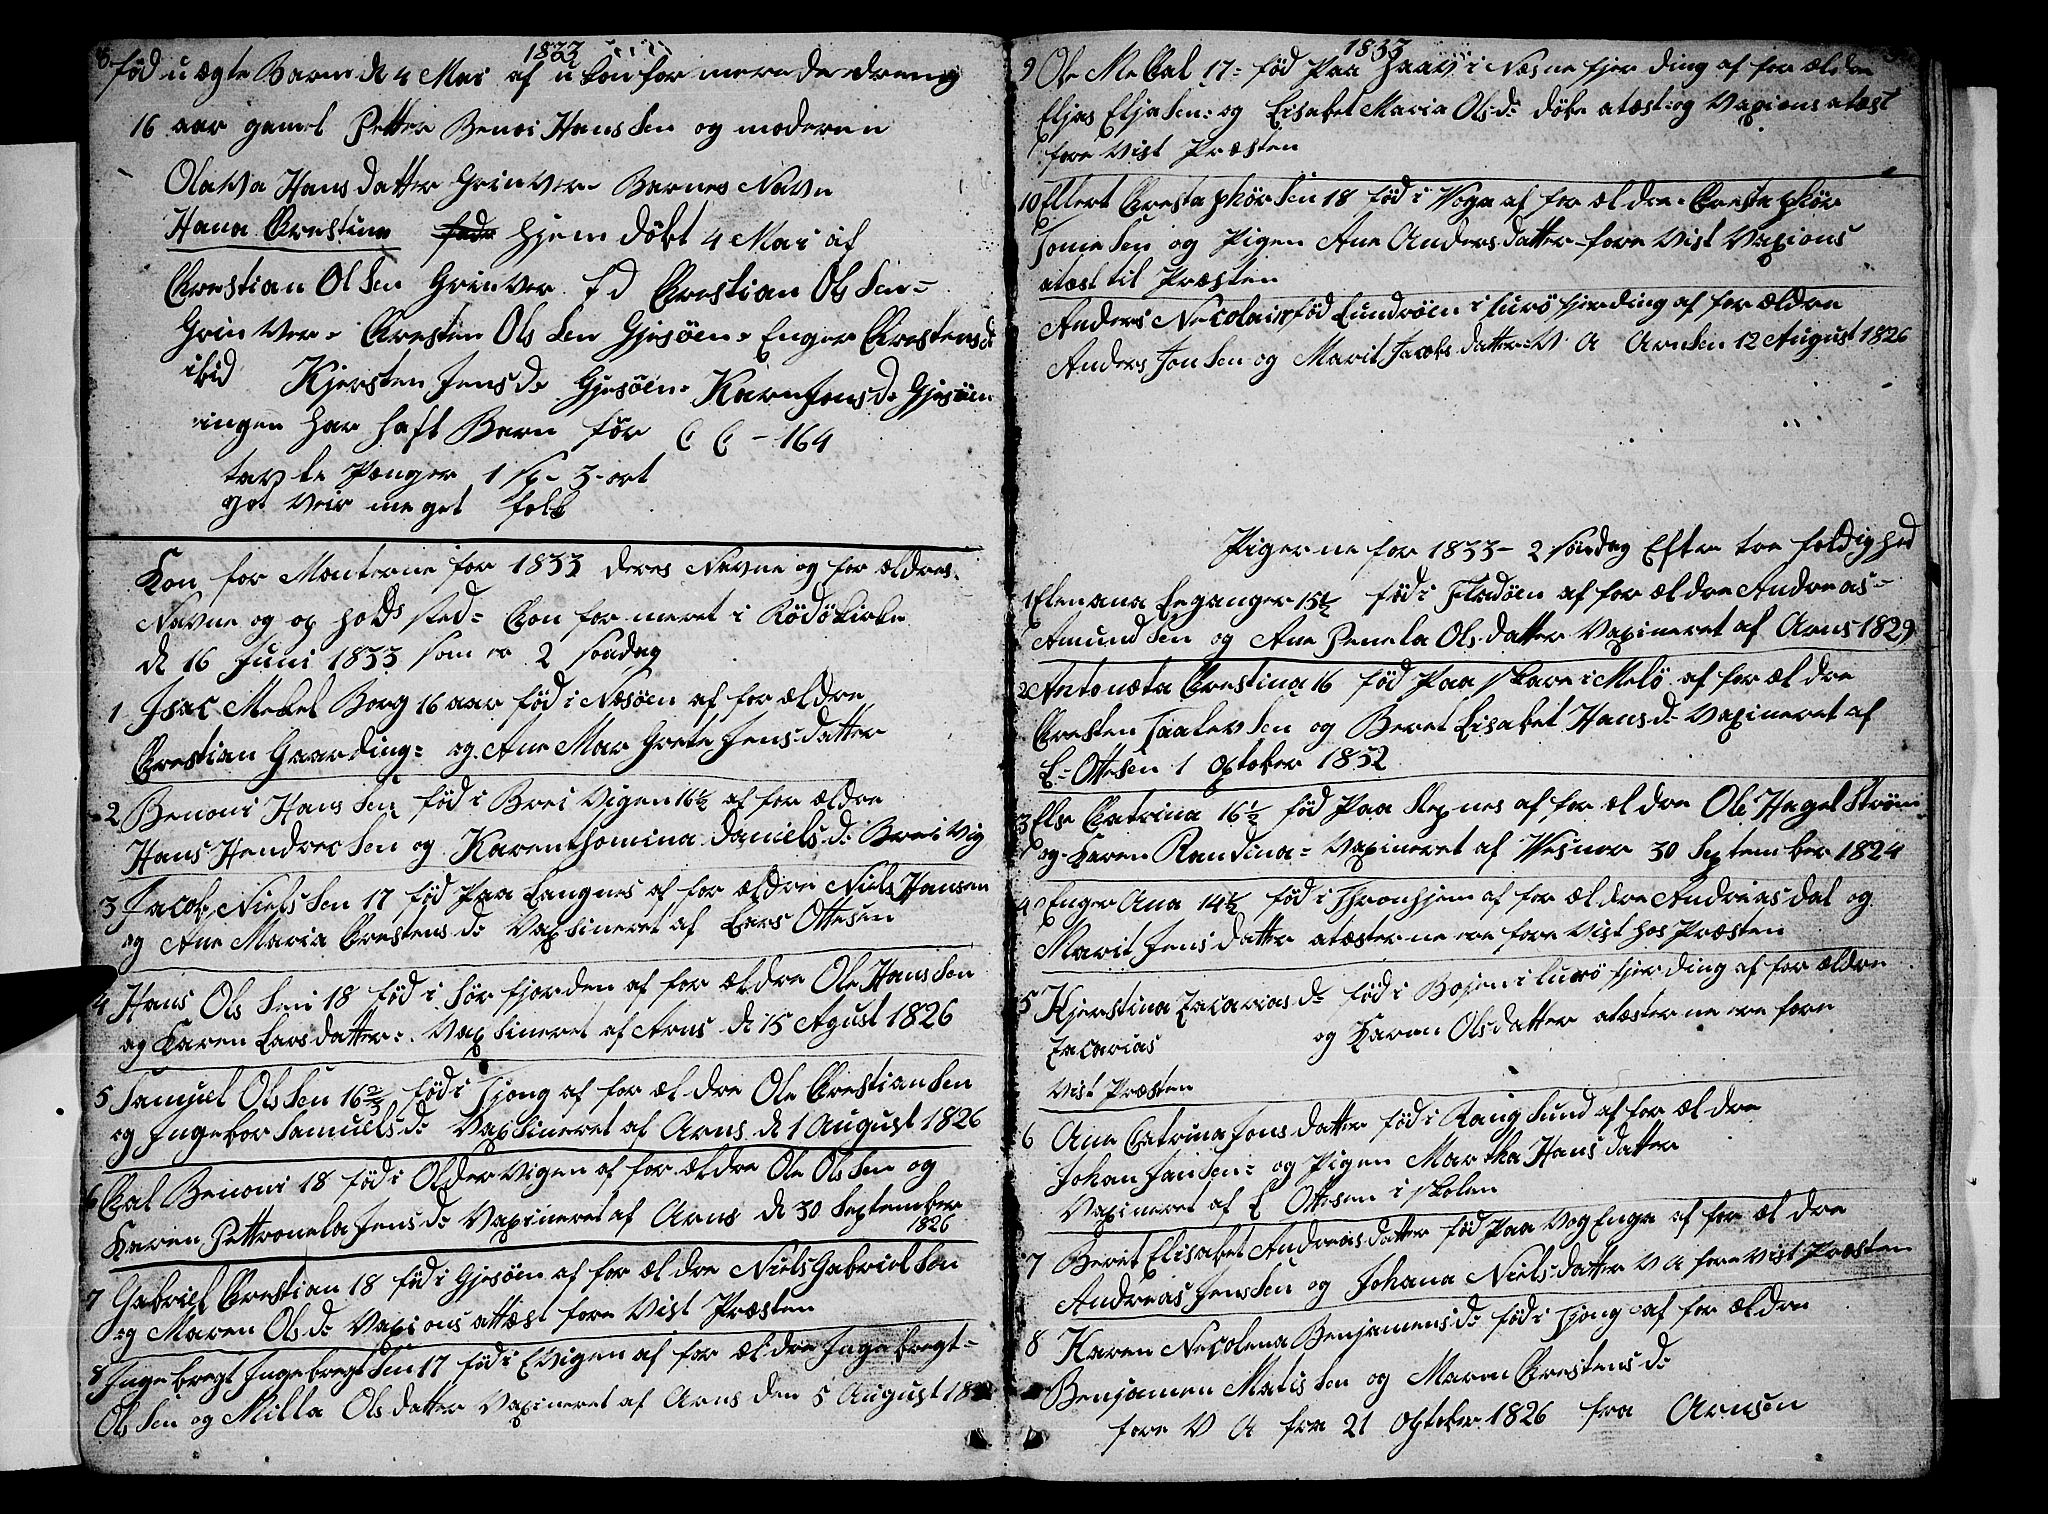 1833
8. fød uægte Barn d 4 Mai af ukonformerede dreng
16 aar gamel Petter Benoi Hanssen og moderen
Olava Hansdatter Grinver Barnes Navn
Hana Chrestina hjem døbt 4 Mai af
Chrestian Olsen Grinver fd Chrestian Olsen
Grinver Chresten Olssen Gjesøen Enger Chrestensd
ibid Kjersten Jensd. Gjesøen Karen Jonsd. Gjesøen
ingen har haft Barn før C C - 164
tavle Penger 1 Sp 3 ort
got Veir meget folk
Kon for Monterne for 1833 deres Navne og for ældres
Navne og op holds sted Chon for meret i Rødøkirke
d 16 Juni 1833 som er 2 sondag
1 Isac Mekel Borg 16 aar fød i Nesøen af for ældre
Chrestian Gaarding og Ane Margrete Jensdatter
2 Benoni Hanssen fød i Brei Vigen 16½ af for ældre
Hans Hendrecsen og Karenthomina Danielsd: Brei Vig
3 Jacob Nielssen 17 fød Paa Langnes af for ældre Niels Hansen
og Ane Maria Chrestensd: Vaxsineret af Lars Ottesen
4 Hans Olssen 18 fød i Sørfjorden af for ældre Ole Hanssen
og Karen Larsdatter: Vaxsineret af Arns d 15 Agust 1826
5 Samuel Olssen 16 2/3 fød i Tjong af for ældre Ole Chrestiansen
og Ingebor Samuelsd: Vaxsineret af Arns d 1 August 1826
6 Chal Benoni 18 fød i Older Vigen af for ældre Ole Olssen og
Karen Pettronela Jensd: Vaxineret af Arns d 30 September
1826
7 Gabriel Chrestian 18 fød i Gjesøen af for ældre Niels Gabrielsen
og Maren Olsd: Vaxions attæst fore Vist Præsten
8 Ingebregt Ingebregtsen 17 fød i Evigen af for ældre Ingebregt
Olssen og Milla Olsdatter Vaxineret af Arns den 5 August
1833
9 Ole Mekal 17 fød Paa Haav i Nesne fjerding af for ældre
Eljas Eljasen og Elisabet Maria Olsd: døbe atæst og Vaxions atæst
fore Vist Præsten
10 Ellert Chrestaphørsen 18 fød i Voga af for ældre Chrestaphør
Tomesen og Pigen Ane Andersdatter fore Vist Vaxions
atæst til Præsten
Anders Necolai 18 fød Lundrøen i Lurø fjerding af for ældre
Anders Jonsen og Marit Jacobsdatter V A Arnsen 12 August 1826
Pigerne for 1833 - 2 sondag Efter tre foldighed
1 Elen ana Leganger 15½ fød i Fladøen af for ældre Andreas
Amundsen og Ane Penela Olsdatter Vaxineret af Arns 1829
2 Antonæta Chrestina 16 fød Paa Skare i Melø af for ældre
Chresten Taalevsen og Beret Lisabet Hansd: Vaxineret af
L Ottesen 1 October 1832
3 Else Catrina 16½ fød Paa Selnes af for ældre Ole Hagelstrøm
og Karen Randina Vaxineret af Wesnor 30 September 1824
4 Enger Ana 14½ fød i Thronhjem af for ældre Andreas dal og
Marit Jensdatter atæsterne ere fore Vist hos Præsten
5 Kjerstina Zacariasd: fød i Bojen i Lurø fjerding af for ældre
Zacarias og Karen Olsdatter atæsterne ere fore
Vist Præsten
6 Ane Catrina Jonsdatter fød i Rangsund af for ældre
Johan Jansen og Pigen Martha Hansdatter
Vaxineret af L Ottesen i Skolen
7 Berit Elisabet Andreasdatter fød Paa Vog Enga af for ældre
Andreas Jenssen og Johana Nielsdatter V A fore Vist Præsten
8 Karen Necolena Benjamensd: fød i Tjong af for ældre
Benjamen Matissen og Maren Chrestensd:
fore V A fra 21 October 1826 fra Arnsen